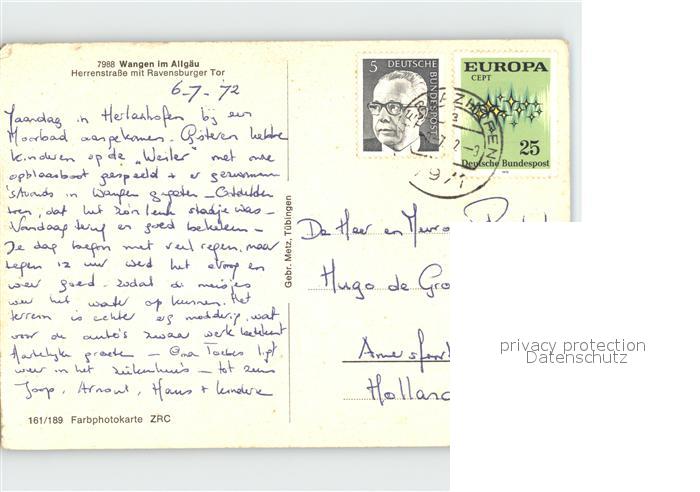 7988 Wangen im Allgäu
Herrenstraße mit Ravensburger Tor
6-7-'72
Maandag in Herlazhofen bij een
Moorbad aangekomen. Gisteren hebben
kinderen op de „Weiler" met onze
opblaasboot gespeeld + er gezwommen
's avonds in Wangen gegeten - Ontdekten
toen, dat het zo'n leuk stadje was -
Vandaag terug en goed bekeken -
De dag begon met veel regen, maar
tegen 12 uur werd het droog en
weer goed - zodat de meisjes
weer het water op kunnen. Het
terrein is echter erg modderig, wat
voor de auto's zwaar werk betekent
Hartelijke groeten - Oma ligt
weer in het ziekenhuis - tot ziens
Joop, Arnout, Hans + kinderen
161/189 Farbphotokarte ZRC
Gebr. Metz, Tübingen
5 DEUTSCHE BUNDESPOST
EUROPA
CEPT
25
Deutsche Bundespost
De Heer en Mevro
Hugo de Gro
Amersfoort
Holland
privacy protection
Datenschutz